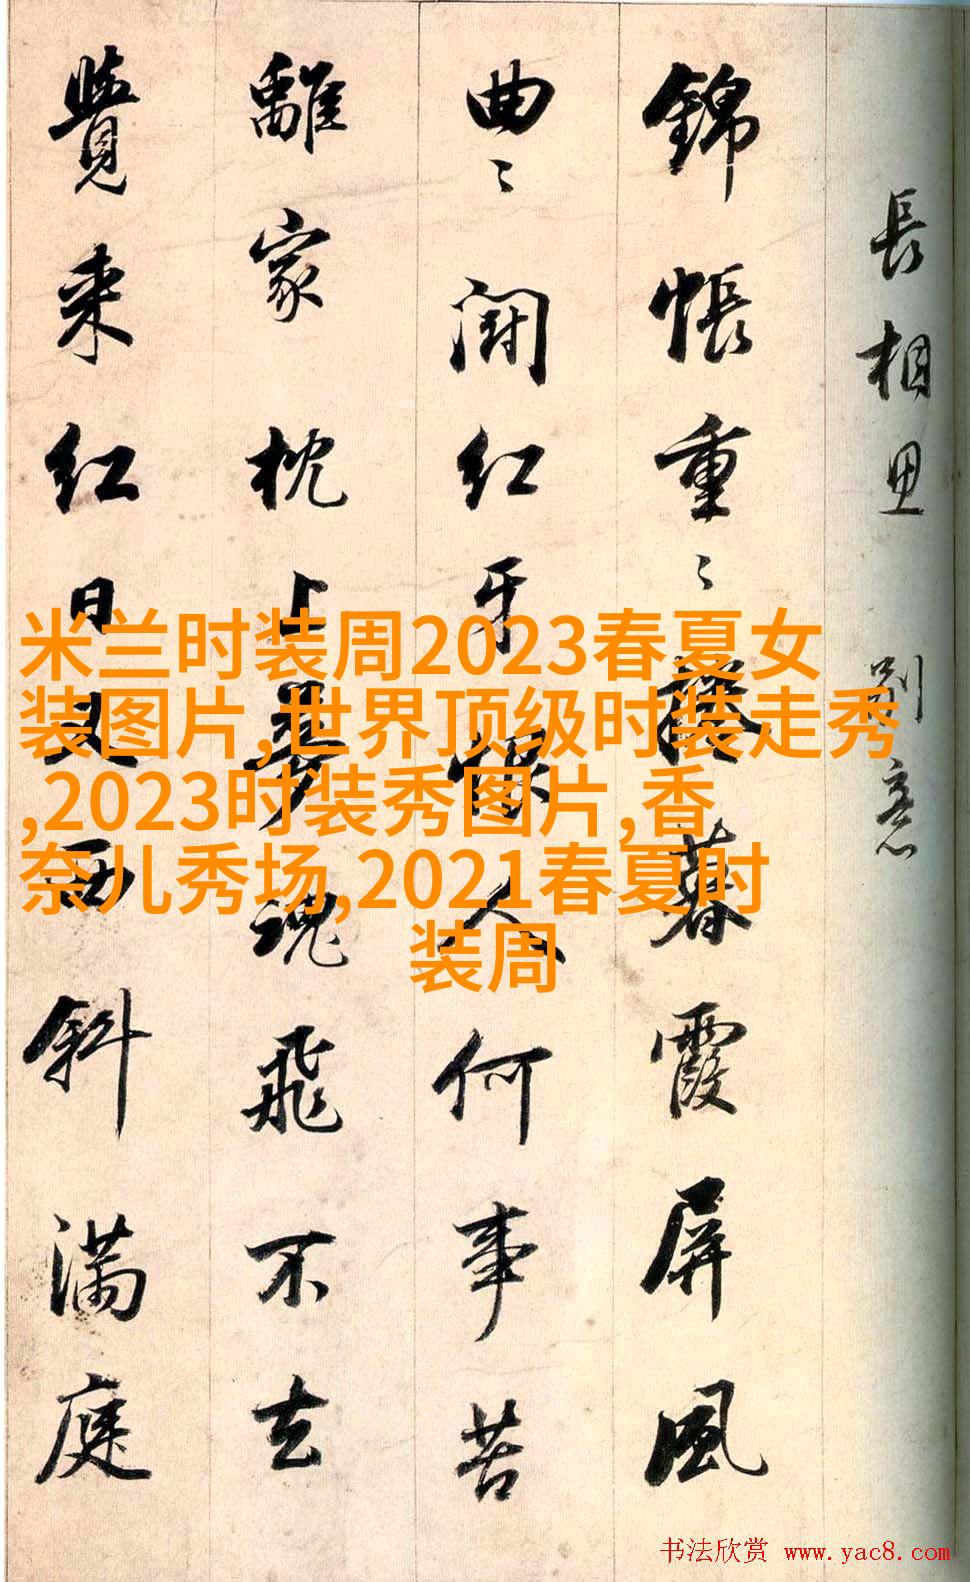 長相思 別意
錦帳重〻捲暮霞屏風
曲〻鬪紅牙恨人何事苦
離家枕上夢魂飛不去
覺来紅日又西斜滿庭
米兰时装周2023春夏女
装图片,世界顶级时装走秀
,2023时装秀图片,香
奈儿秀场,2021春夏时
装周
书法欣赏 www.yac8.com